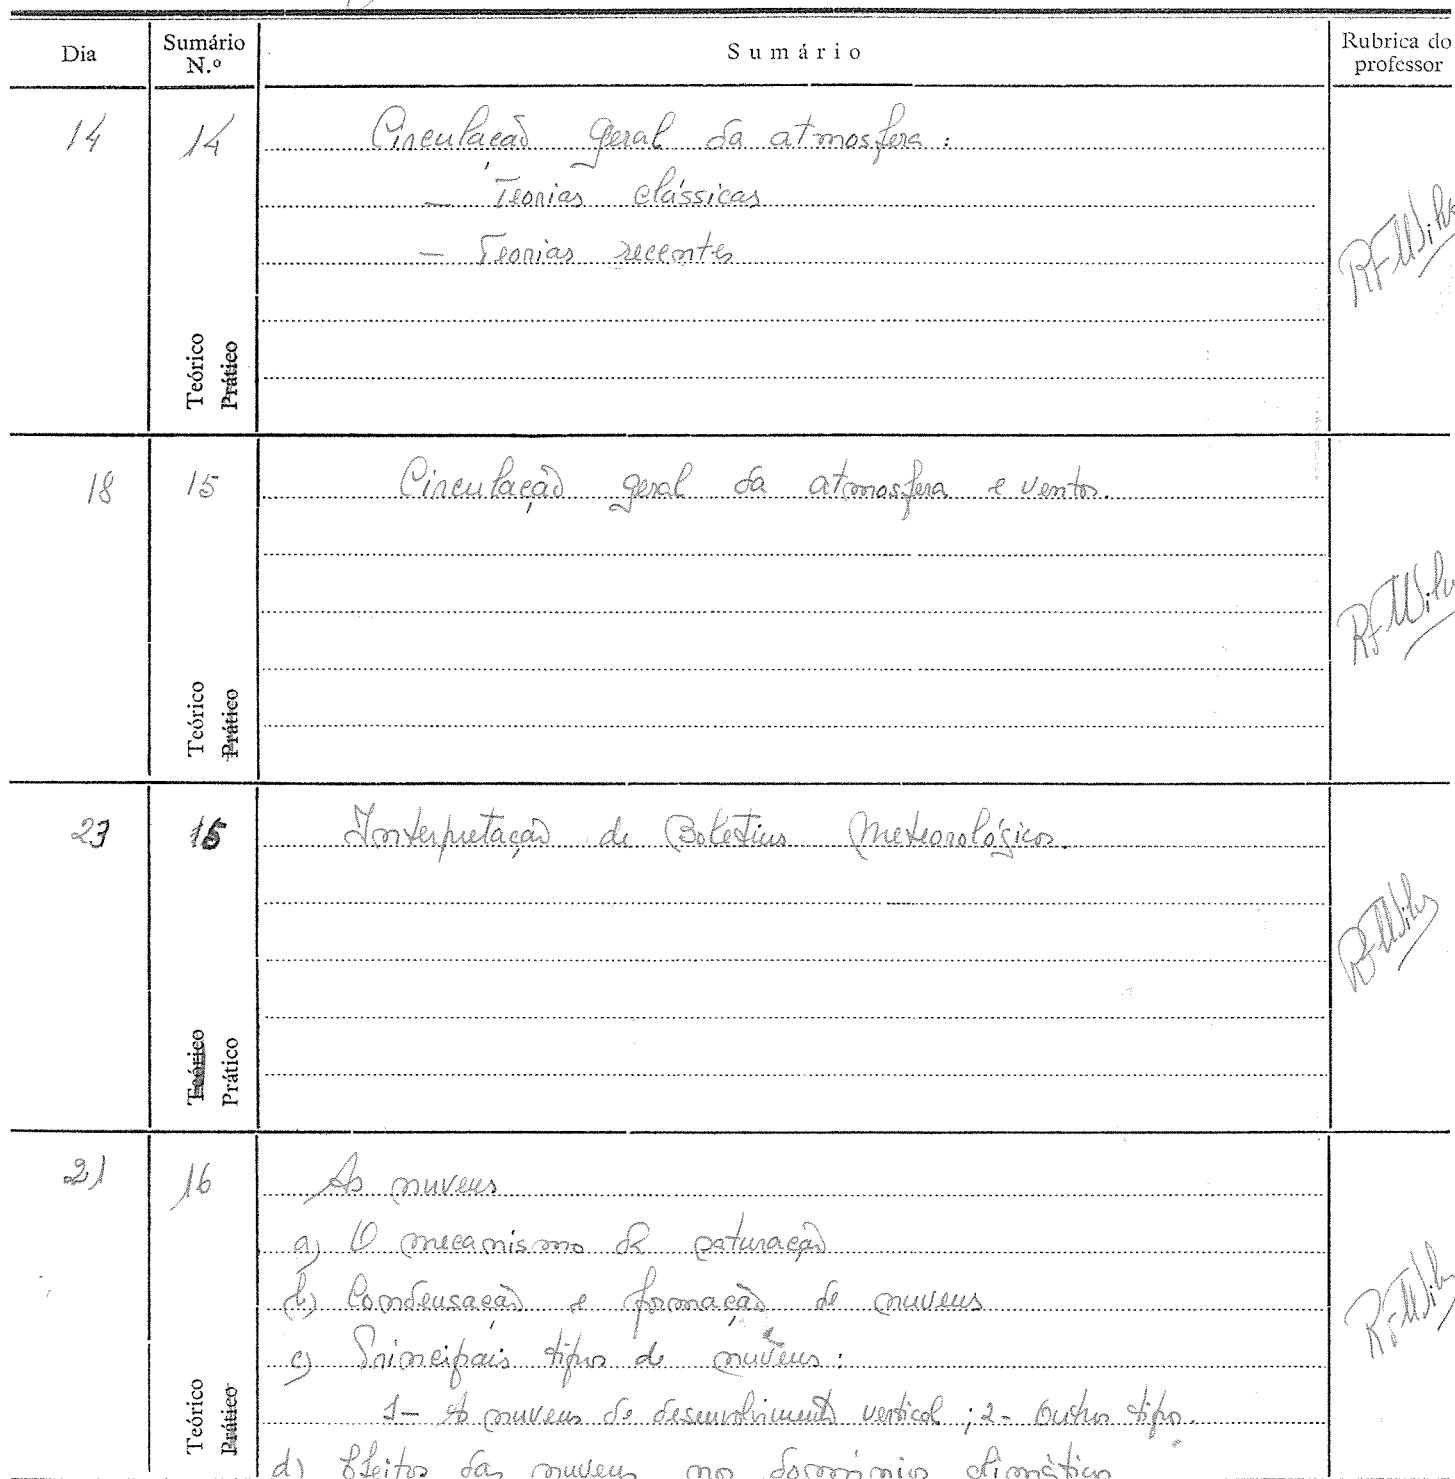 Dia Sumário N.º Sumário Rubrica do professor
14 14 Circulação geral da atmosfera:
– Teorias clássicas
– Teorias recentes
Teórico
Prático
18 15 Circulação geral da atmosfera e ventos.
Teórico
Prático
23 15 Interpretação de Boletins Meteorológicos.
Teórico
Prático
21 16 As nuvens
a) O mecanismo da saturação
b) Condensação e formação de nuvens
c) Principais tipos de nuvens:
1– As nuvens de desenvolvimento vertical; 2- Outros tipos.
Teórico
Prático
d) Efeitos das nuvens nos domínios climáticos